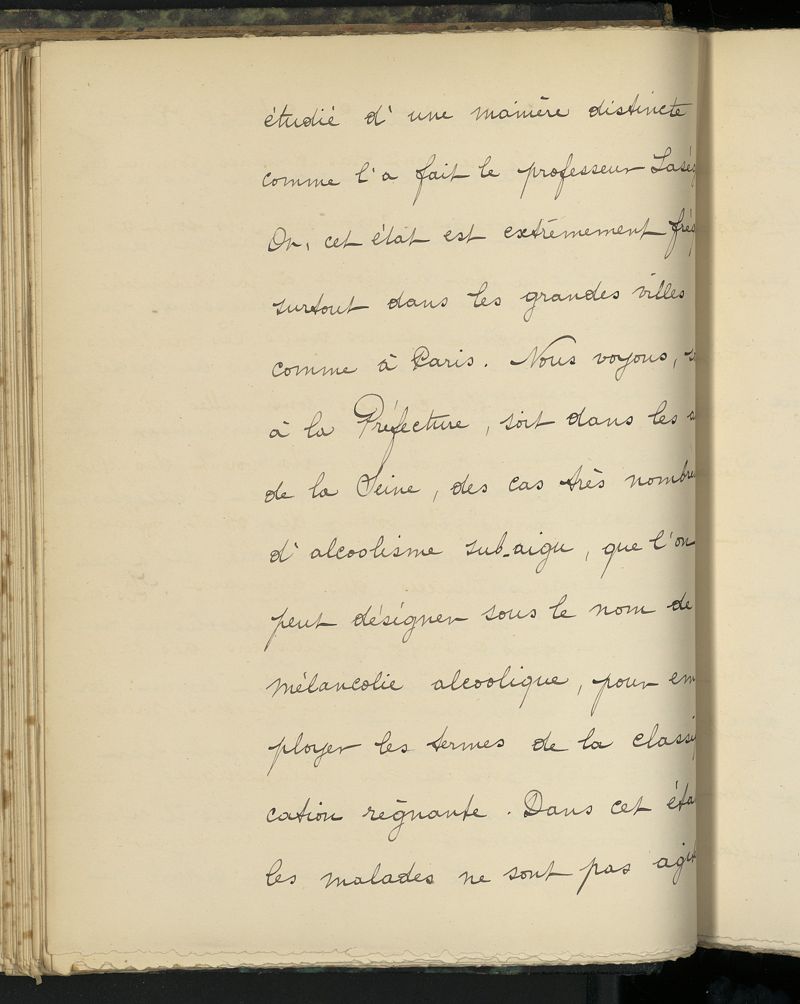 étudié d'une manière distincte
comme l'a fait le professeur
Or, cet état est extrêmement
surtout dans les grandes villes
comme à Paris. Nous voyons,
à la Préfecture, soit dans les
de la Seine, des cas très
d'alcoolisme sub-aigu, que l'on
peut désigner sous le nom de
mélancolie alcoolique, pour em
ployer les termes de la
cation régnante. Dans cet
les malades ne sont pas